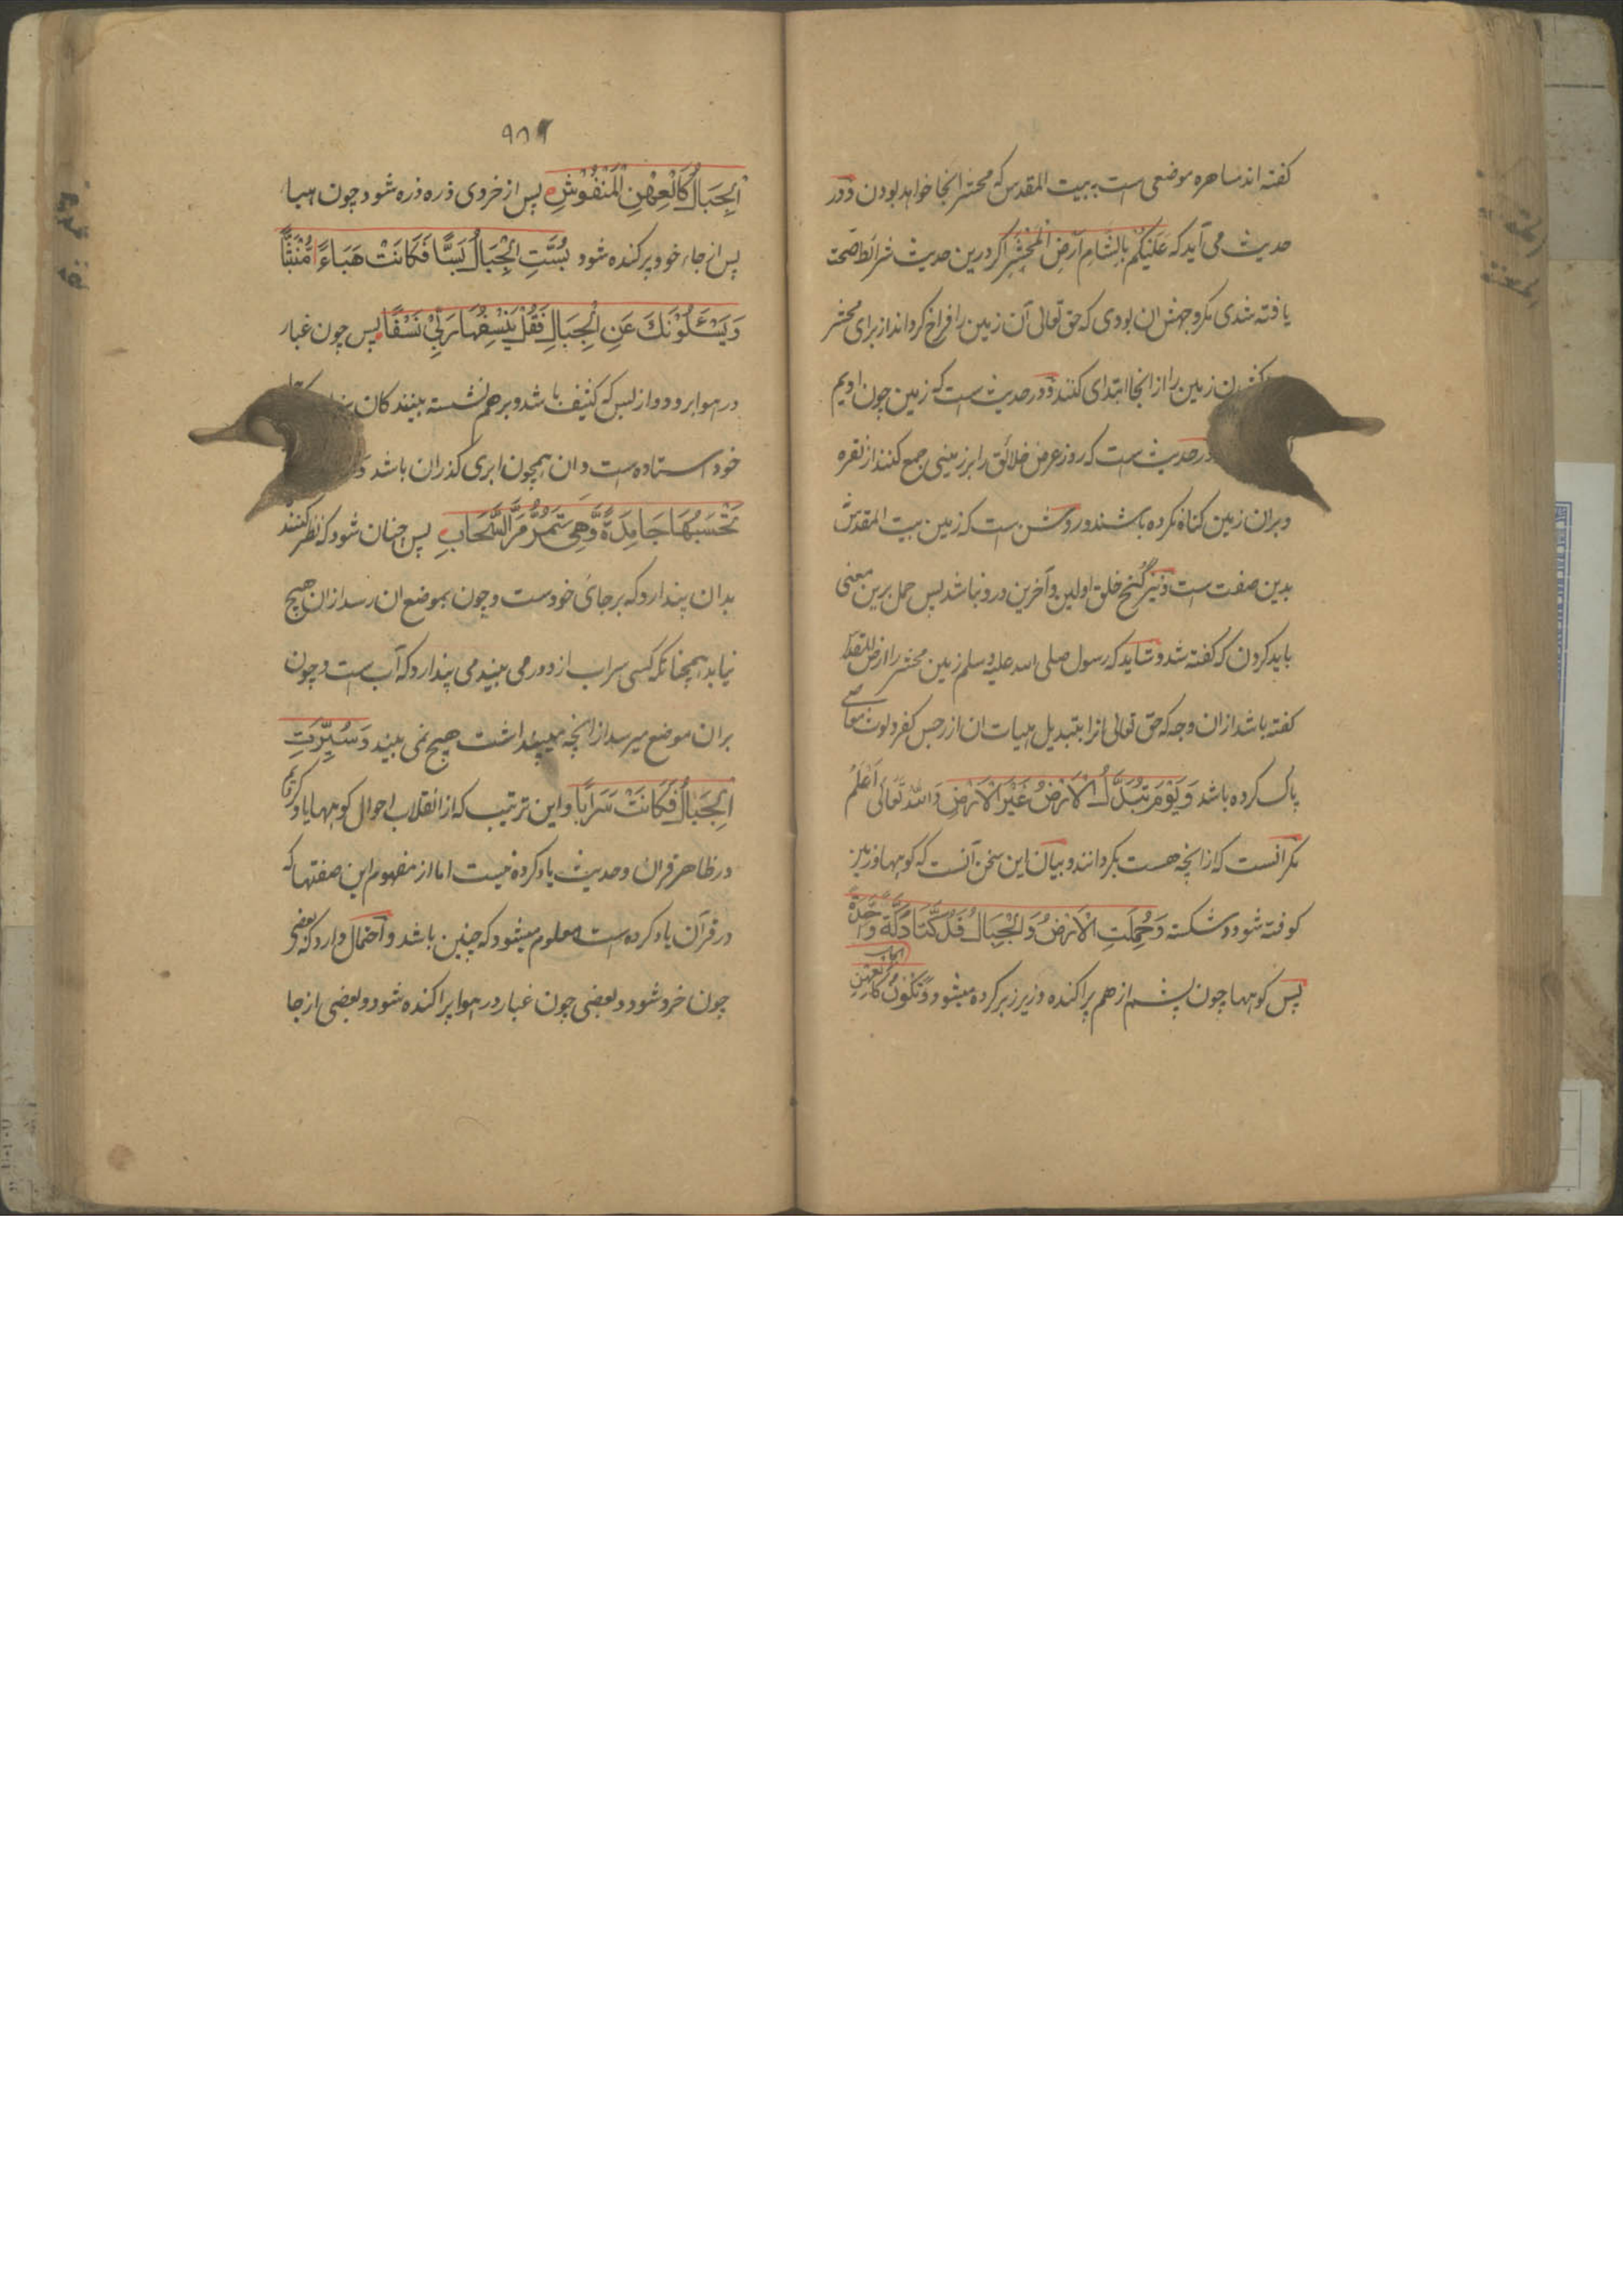 گفته اند ساهره موضعی است به بیت المقدس که محشر انجا خواهد بودن و در
حدیث می آید که عَلَیْکُمْ بِالشَّامِ اَرْضِ الْمَحْشَرِ اگر درین حدیث شرائط صحت
یافته شدی مگر وجهش ان بودی که حق تعالی آن زمین را فراخ گرداند از برای محشر
زمین را از انجا ابتدای کنند و در حدیث است که زمین چون ادیم
در حدیث است که روز عرض خلائق را بر زمینی جمع کنند از نقره
و بران زمین گناه نکرده باشند و روشن ست که زمین بیت المقدس
بدین صفت ست و نیز گنج خلق اولین و آخرین درو نباشد پس حمل برین معنی
باید کردن که گفته شد و شاید که رسول صلی الله علیه وسلم زمین محشر را ارض المقدس
گفته باشد ازان وجه که حق تعالی انرا بتبدیل هیات ان از رجس کفر و لوث معاصی
پاک کرده باشد وَ یَوْمَ تُبَدَّلُ الْاَرْضُ غَیْرَ الْاَرْضِ وَاللّٰهُ تَعَالٰی اَعْلَمُ
مگر آنست که از انچه هست بگردانند و بیان این سخن آنست که کوهها و زمین
کوفته شود و شکسته وَحُمِلَتِ الْاَرْضُ وَالْجِبَالُ فَدُکَّتَا دَکَّةً وَّاحِدَةً
پس کوهها چون پشم از هم پراکنده و زیر زبر کرده میشود وَتَکُوْنُ
۹۵۶
الْجِبَالُ کَالْعِهْنِ الْمَنْفُوْشِ پس از خردی ذره ذره شود چون هبا
پس از جاء خود پرکنده شود بُسَّتِ الْجِبَالُ بَسًّا فَکَانَتْ هَبَاءً مُّنْبَثًّا
وَیَسْئَلُوْنَکَ عَنِ الْجِبَالِ فَقُلْ یَنْسِفُهَا رَبِّیْ نَسْفًا پس چون غبار
در هوا برود و از بس که کثیف باشد و بر هم نشسته بینندکان
خود استاده ست و ان همچون ابری گذران باشد وَ
تَحْسَبُهَا جَامِدَةً وَّهِیَ تَمُرُّ مَرَّ السَّحَابِ پس چنان شود که نظر کنند
بدان پندارد که بر جای خود ست و چون بموضع ان رسد ازان هیچ
نیابد همچنانکه کسی سراب از دور می بیند می پندارد که آب ست و چون
بران موضع میرسد از انچه می پنداشت هیچ نمی بیند وَ سُیِّرَتِ
الْجِبَالُ فَکَانَتْ سَرَابًا و این ترتیب که از انقلاب احوال کوهها یاد کردیم
در ظاهر قران و حدیث یاد کرده نیست اما از مفهوم این صفتها که
در قرآن یاد کرده است معلوم میشود که چنین باشد و احتمال دارد که بعضی
چون خرد شود و بعضی چون غبار در هوا پراکنده شود و بعضی از جا